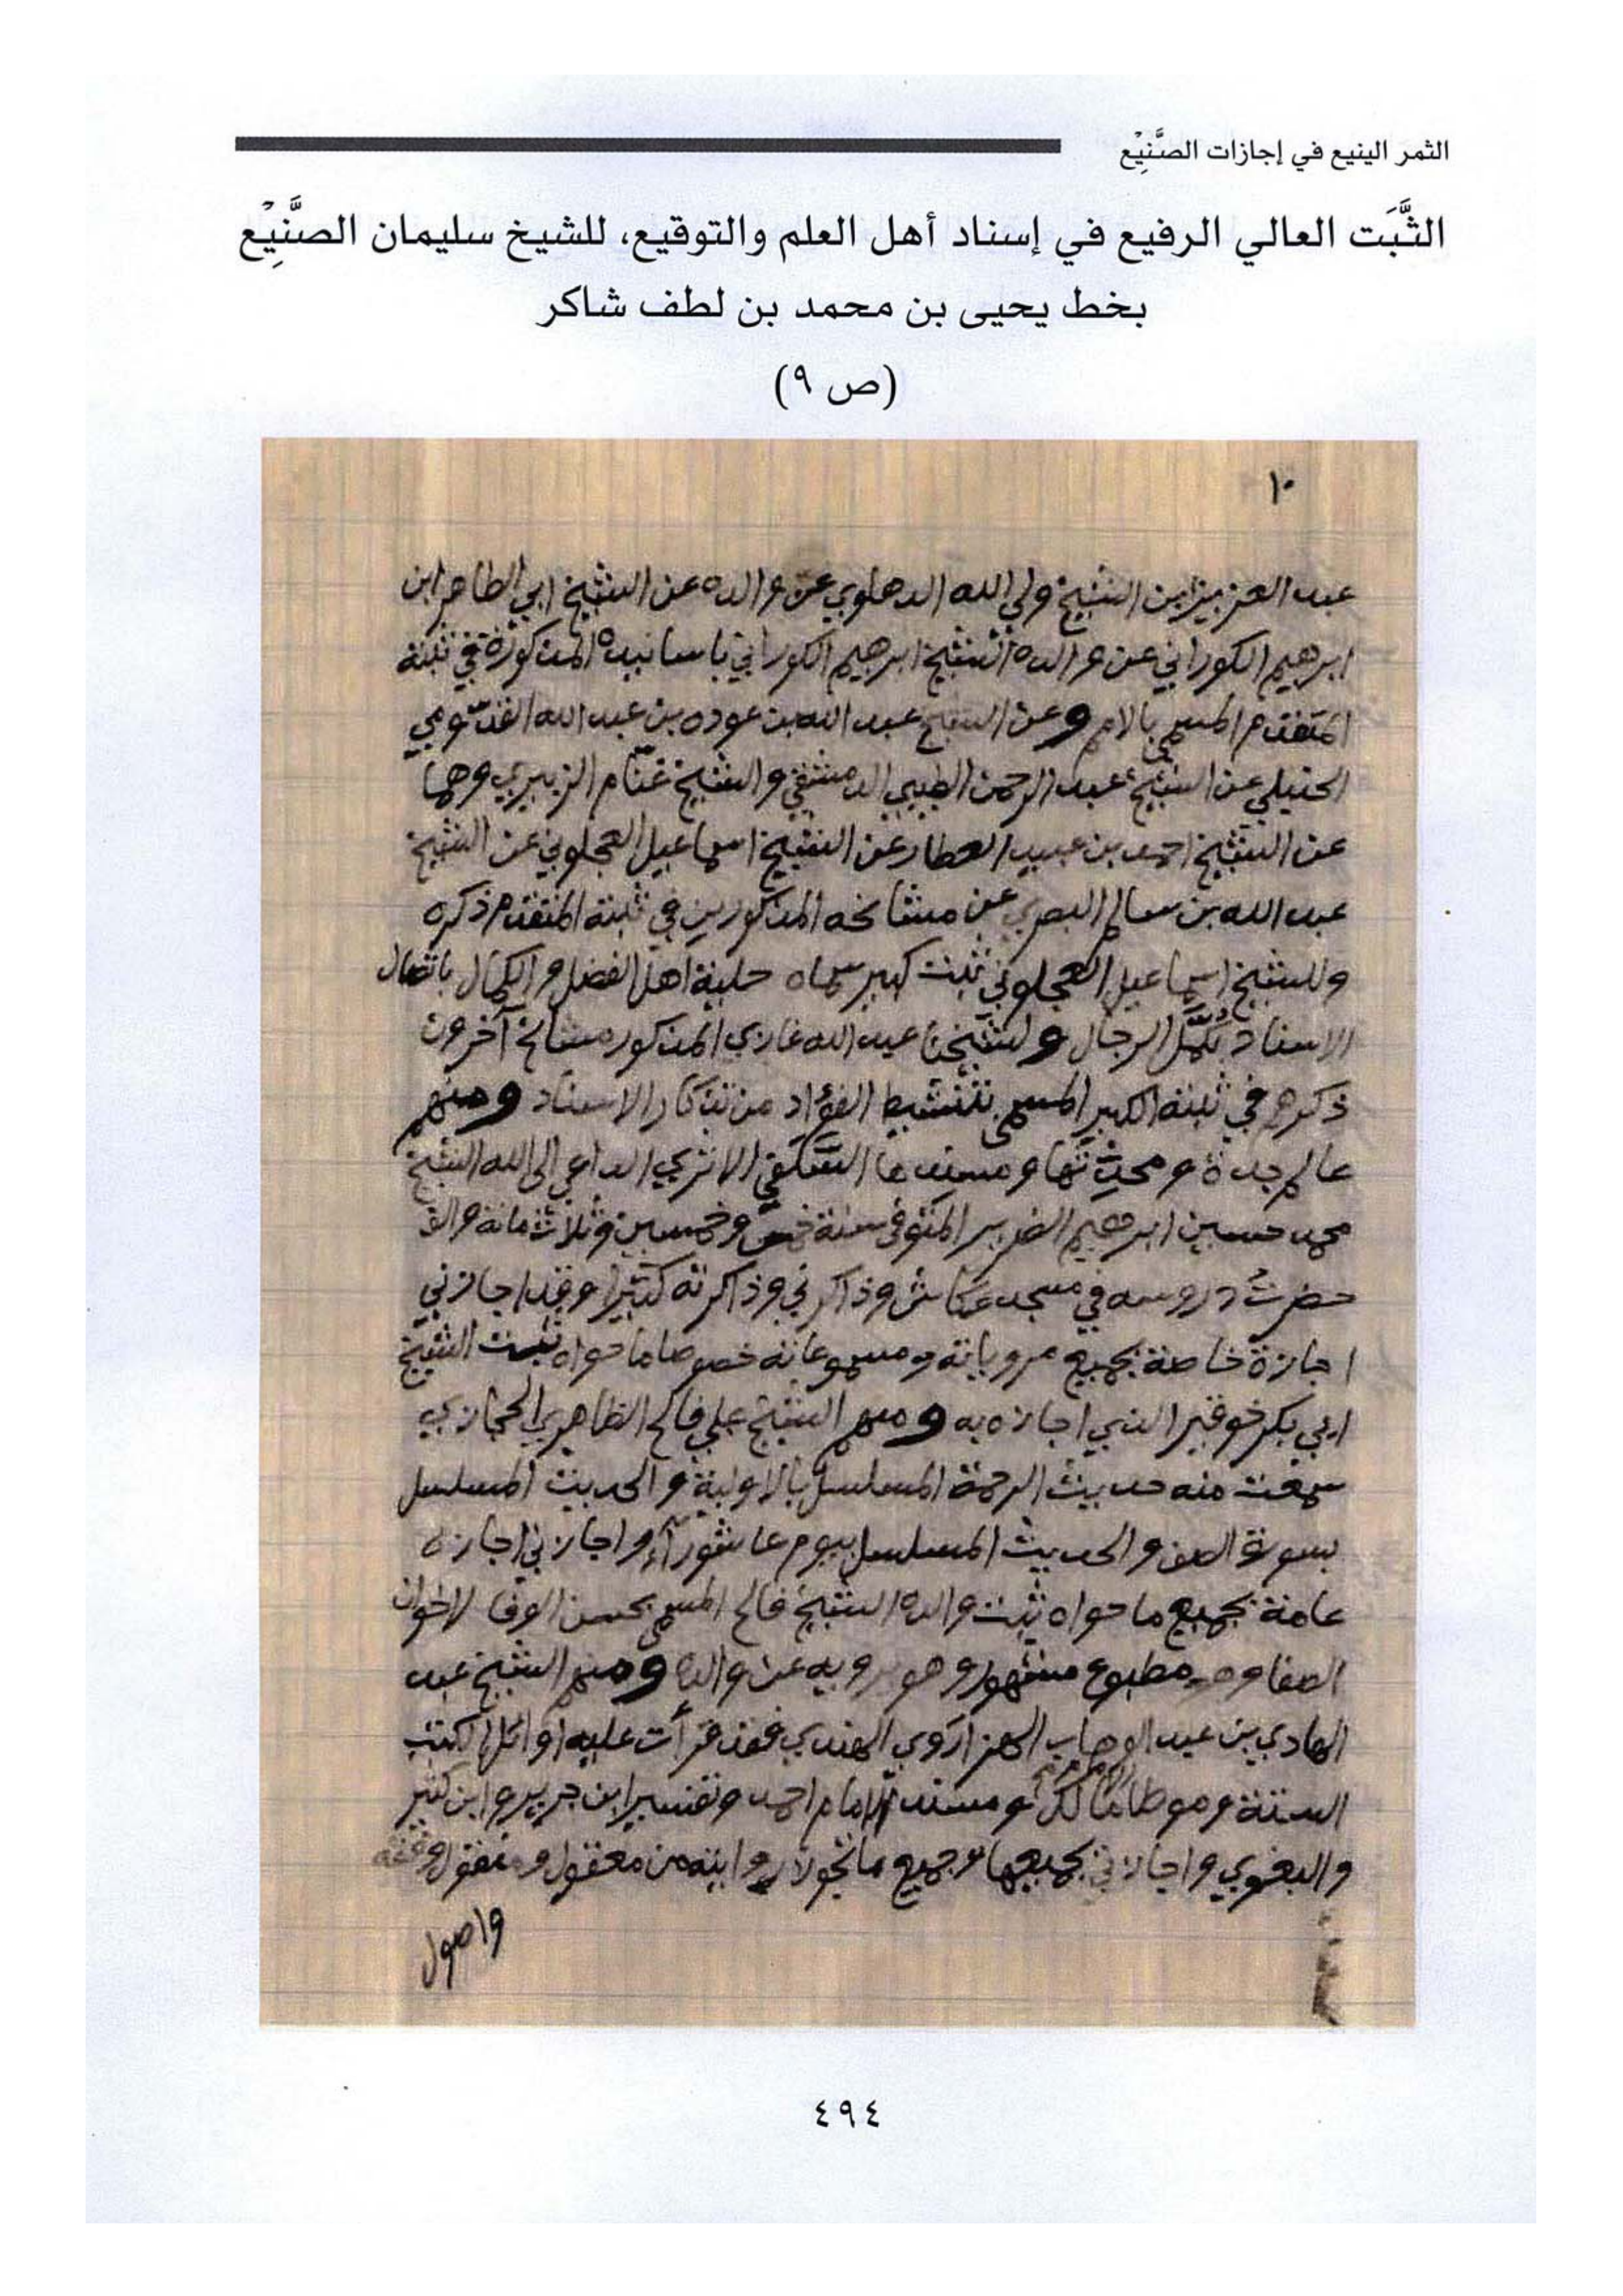 الثمر الينيع في إجازات الصَّنِيْع
الثَّبَت العالي الرفيع في إسناد أهل العلم والتوقيع، للشيخ سليمان الصَّنِيْع
بخط يحيى بن محمد بن لطف شاكر
(ص ٩)
١٠
عبد العزيز ابن الشيخ ولي الله الدهلوي عن والده عن الشيخ ابي الطاهر ابن
ابرهيم الكوراني عن والده الشيخ ابرهيم الكوراني باسانيده المذكورة في ثبته
المتقدم المسمى بالامم وعن الشيخ عبد الله بن عوده بن عبد الله القدّومي
الحنبلي عن الشيخ عبد الرحمن الطيبي الدمشقي والشيخ غنّام الزبيري وهما
عن الشيخ احمد بن عبيد العطار عن الشيخ اسماعيل العجلوني عن الشيخ
عبد الله بن سالم البصري عن مشائخه المذكورين في ثبته المتقدم ذكره
وللشيخ اسماعيل العجلوني ثبت كبير سماه حلية اهل الفضل والكمال باتصال
الاسناد بكمّل الرجال ولشيخنا عبد الله غازي المذكور مشائخ آخرون
ذكرهم في ثبته الكبير المسمى بتنشيط الفؤاد من تذكار الاسناد ومنهم
عالم جدة ومحدِّثها ومسندها السَّلَفي الاثري الداعي الى الله الشيخ
محمد حسين ابرهيم الفقيه المتوفى سنة خمس وخمسين وثلاثمائة والف
حضرتُ دروسه في مسجد عكاش وذاكرني وذاكرته كثيرا وقد اجازني
اجازة خاصة بجميع مروياته ومسموعاته خصوصا ما حواه ثبت الشيخ
ابي بكر خوقير الذي اجازه به ومنهم الشيخ علي فالح الظاهري الحجازي
سمعت منه حديث الرحمة المسلسل بالاولية والحديث المسلسل
بسورة الصف والحديث المسلسل بيوم عاشورآء واجازني اجازه
عامة بجميع ما حواه ثبت والده الشيخ فالح المسمى بحسن الوفا لاخوان
الصفا وهو مطبوع مشهور وهو يرويه عن والده ومنهم الشيخ عبد
الهادي بن عبد الوهاب الهزاروي الهندي فقد قرأت عليه اوائل الكتب
الستة وموطا الامام مالك ومسند الامام احمد وتفسير ابن جرير وابن كثير
والبغوي واجازني بجميعها وجميع ما تجوز له روايته من معقول ومنقول وفقه
واصول
٤٩٤